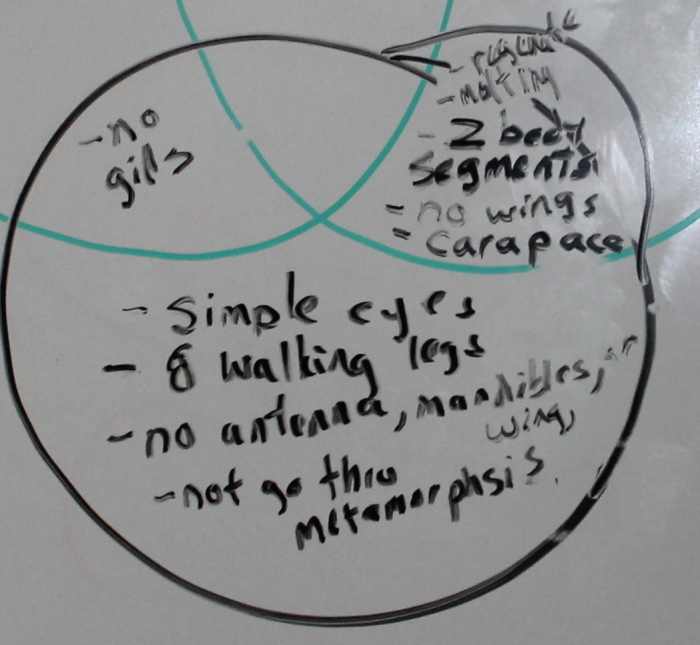 - no
gills
- regenerate
- molting
- 2 body
segments
- no wings
- carapace
- simple eyes
- 8 walking legs
- no antenna, mandibles, or
wings
- not go thru
metamorphsis.